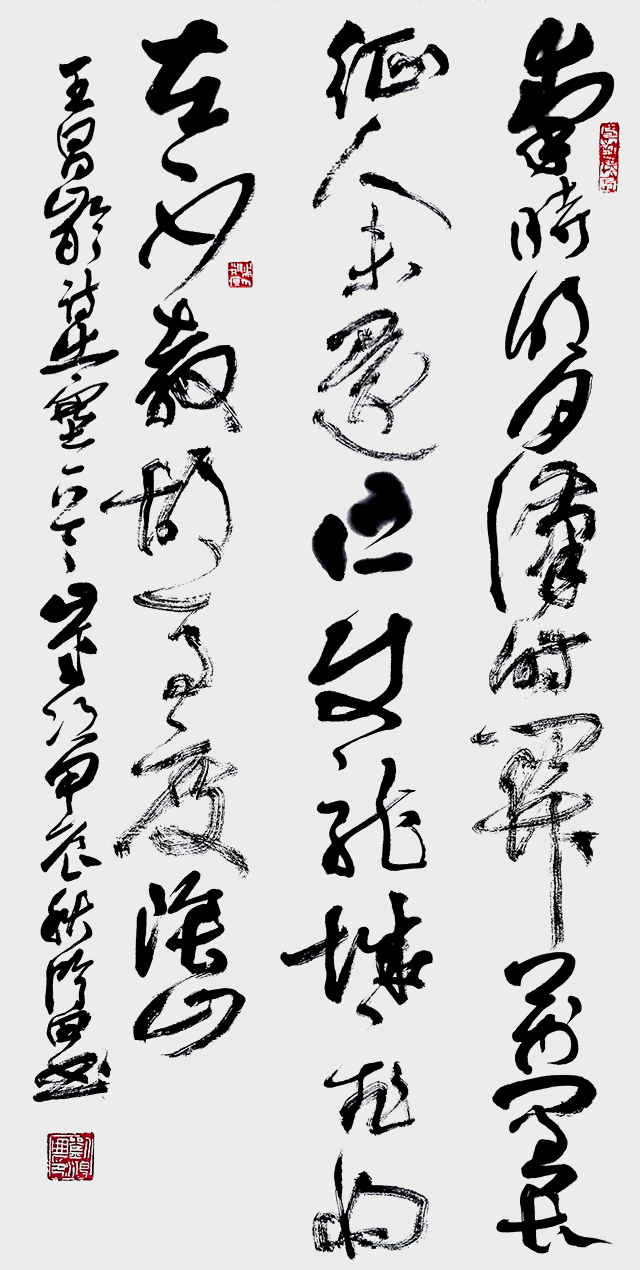 秦時明月漢時關萬里長
征人未還但使龍城飛將
在不教胡馬度陰山
王昌齡詩出塞一首歲次甲辰秋田書